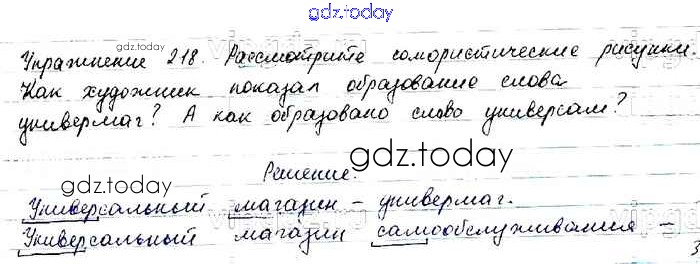 gdz.today
Упражнение 218. Рассмотрите юмористические рисунки.
Как художник показал образование слова
универмаг? А как образовано слово универсам?
Решение:
Универсальный магазин – универмаг.
Универсальный магазин самообслуживания –
gdz.today
gdz.today
gdz.today
gdz.today
3